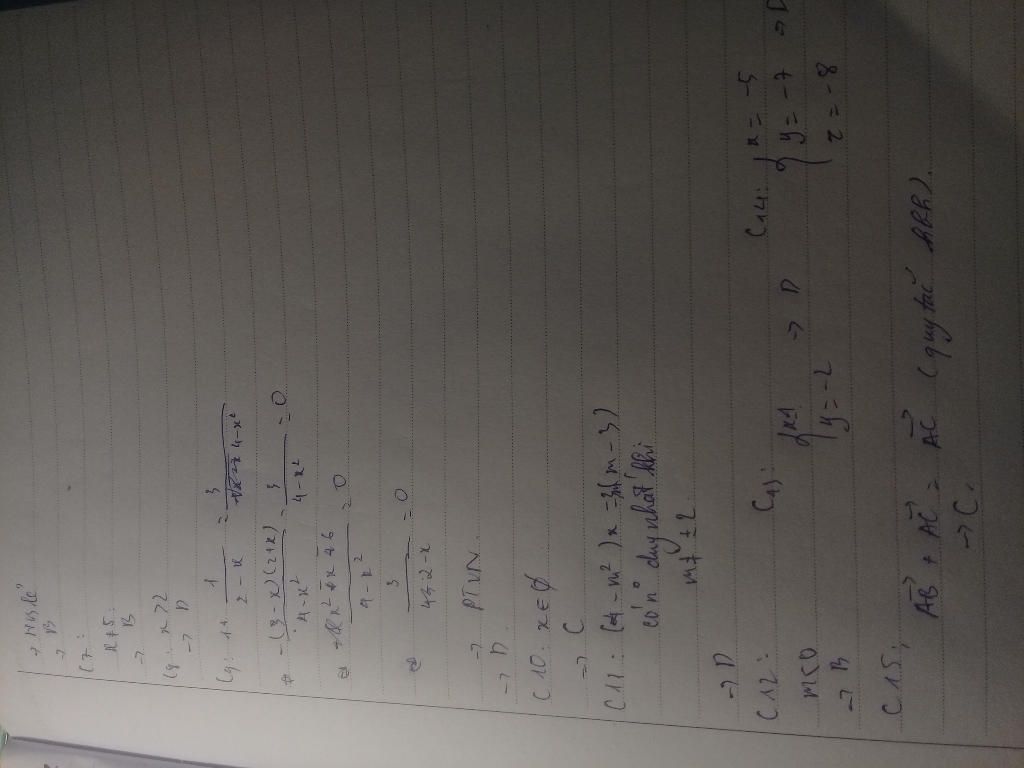 → HS lẻ
→ B
C7:
x ≠ 5
→ B
C8: x > 2
→ D
C9: 1 + 1/(2-x) = 3/(4-x²)
(3-x)(2+x)/(4-x²) = 3/(4-x²) = 0
= 0
4-x²
3
= 0
→ PTVN
→ D
C10: x ∈ ∅
→ C
C11: (4-m²)x = 3(m-3)
có n° duy nhất khi
m ≠ ±2
→ D
C12:
m<0
→ B
C13: { x=1
y = -2 → D
C14: { x = -5
y = -7 → D
z = -8
C15:
AB + AC = AC (quy tắc
→ C.